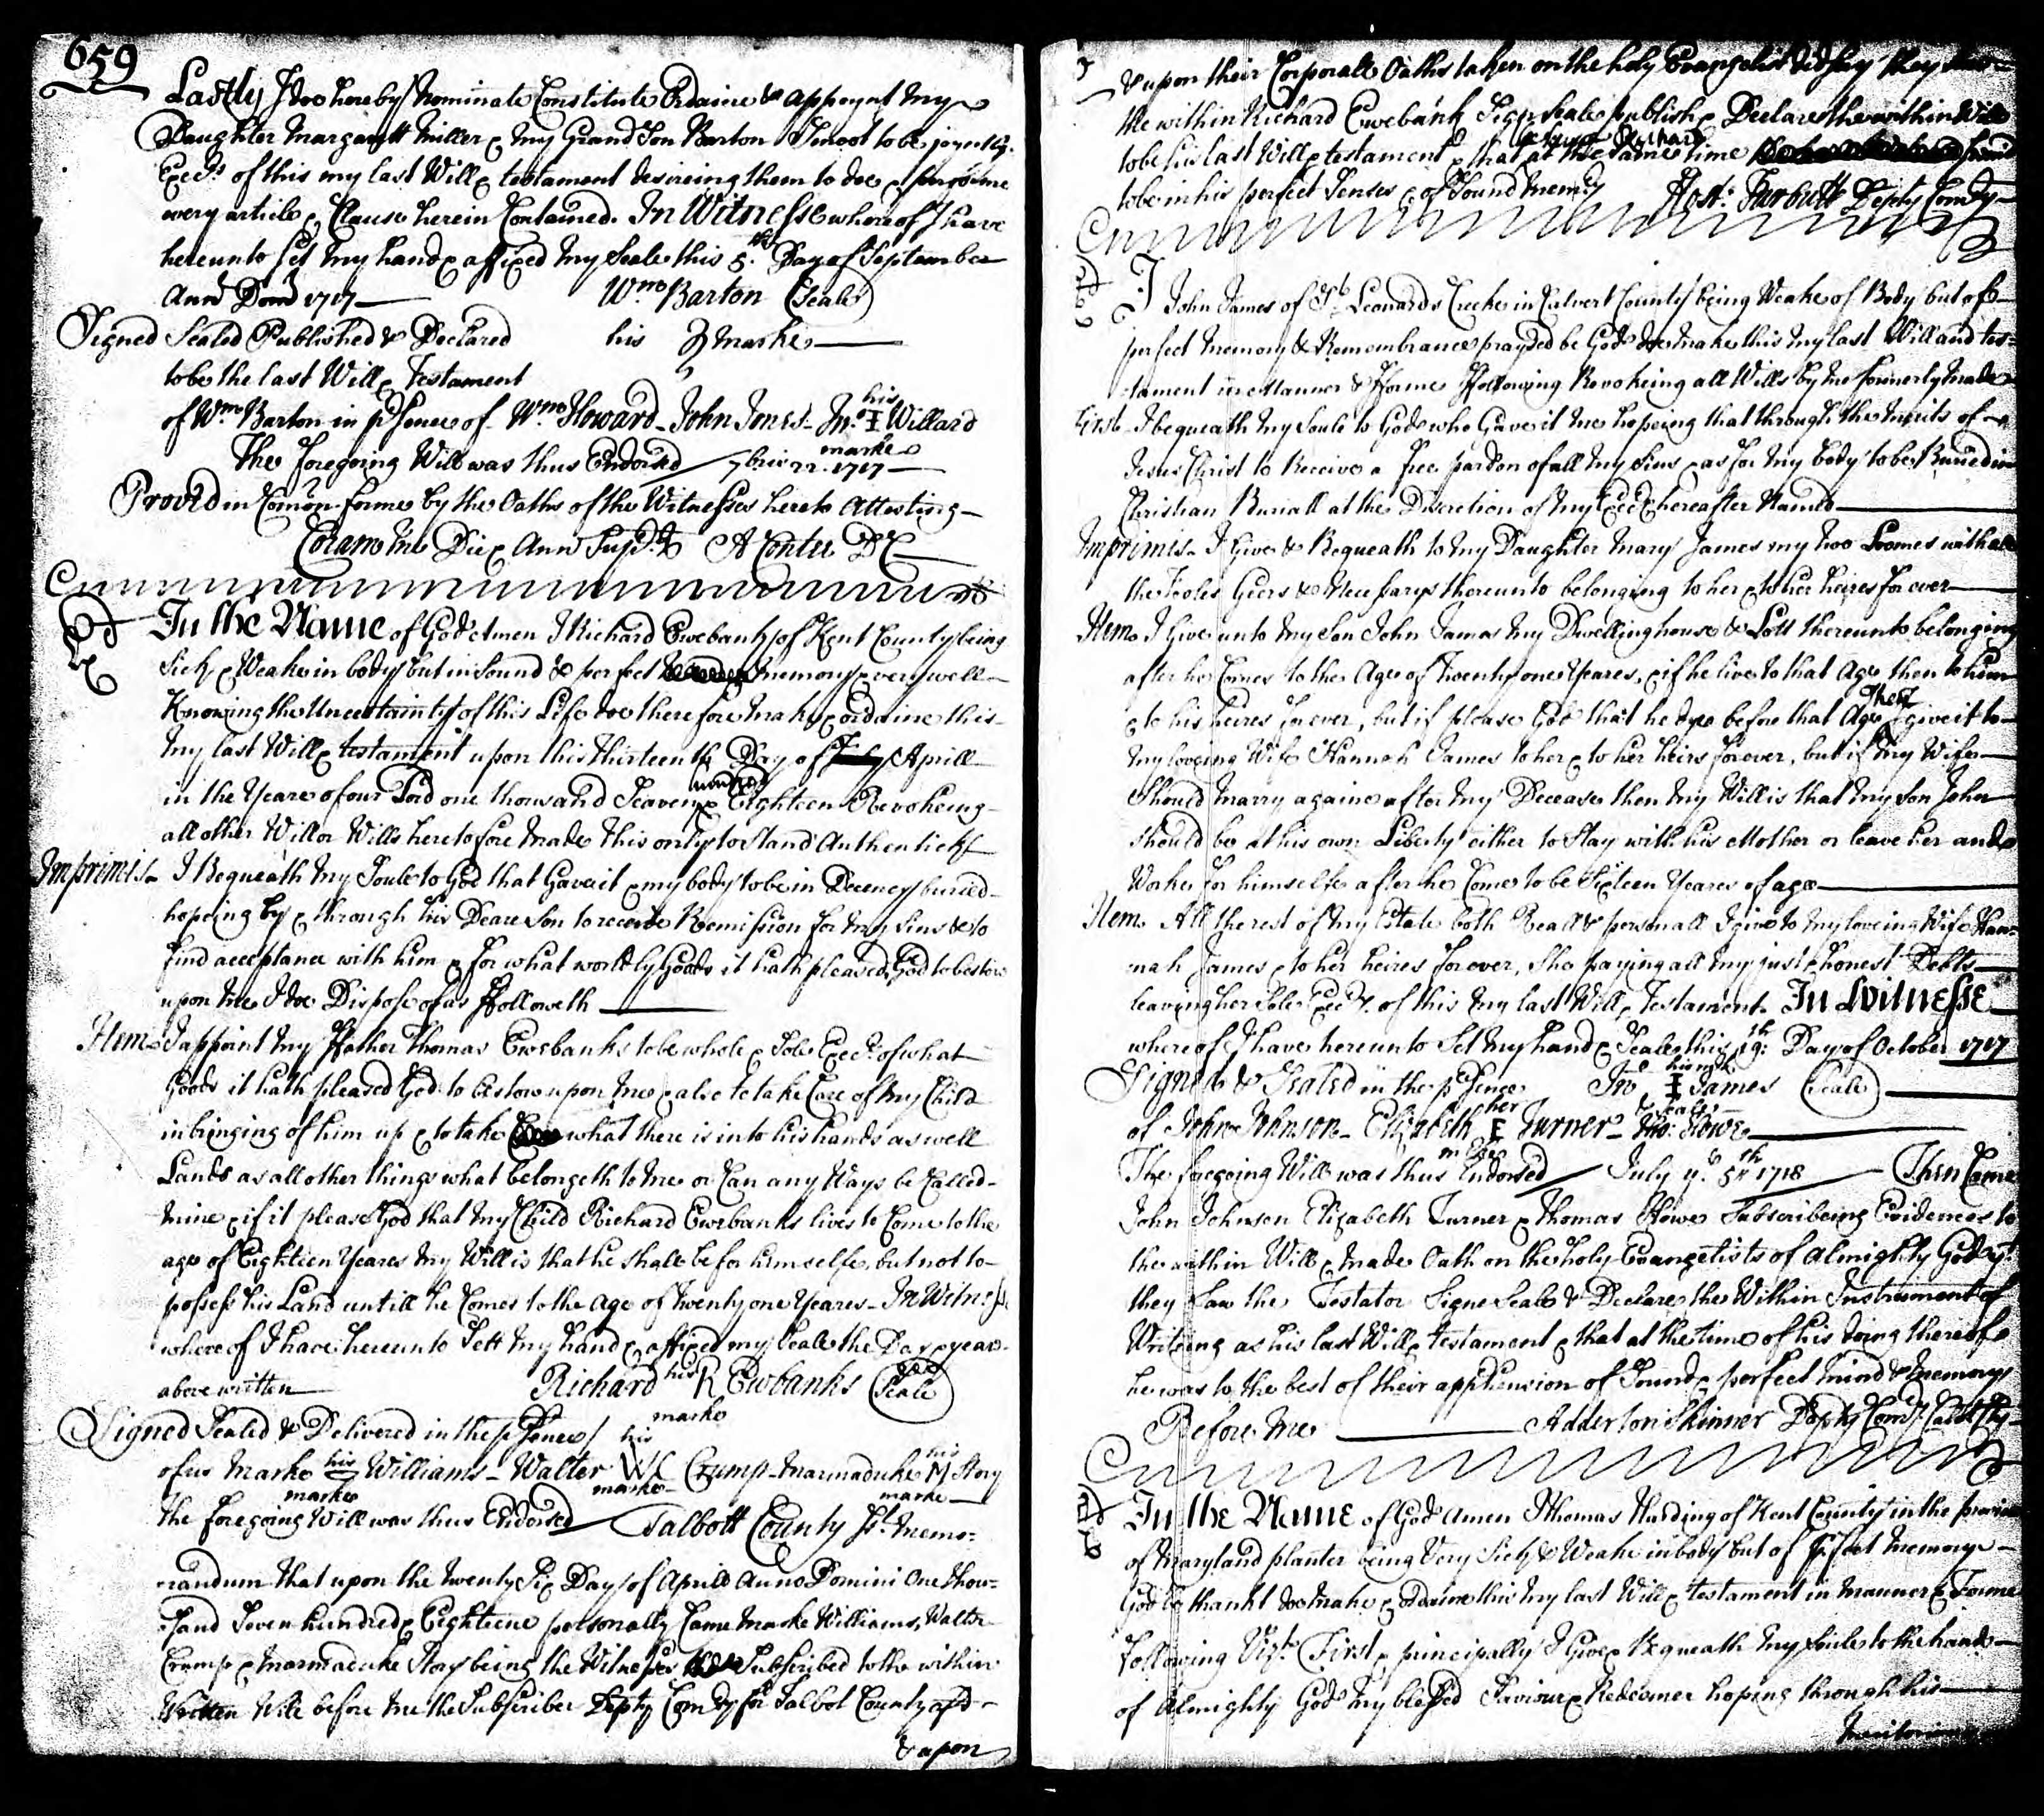 659
Lastly I doe hereby Nominate Constitute Ordaine & appoynt my
Daughter Margarett Miller & my Grand Son Barton Smoot to be joyntly
Execrs of this my last Will & testament desireing them to doe & performe
every article & Clause herein Contained. In Witnesse whereof I have
hereunto set my hand & affixed my Seale this 5th Day of September
Anno Domi 1717
Wm Barton (Seale)
Signed Sealed Published & Declared
his marke
to be the last Will & Testament
of Wm Barton in psence of Wm Howard - John Jones - Jno his I Willard
marke
The foregoing Will was thus Endorsed 7brie 22. 1717
Proved in Comon forme by the Oaths of the Witnesses hereto Attesting
Coram me Die & Anno Supd A Contee DC
In the Name of God Amen I Richard Ewebanks of Kent County being
Sick & Weake in body but in Sound & perfect memory & very well
Knowing the Uncertainty of this Life doe therefore make & ordaine this
my last Will & testament upon this thirteenth Day of Aprill
in the Yeare of our Lord one thousand Seaven hundred & Eighteen Revokeing
all other Will or Wills heretofore made this only to Stand Authentick
Imprimis I Bequeath my Soule to God that Gave it & my body to be in Decency buried
hopeing by & through his Deare Son to receive Remission for my Sins & to
find acceptance with him & for what worldly Goods it hath pleased God to bestow
upon me I doe Dispose of as Followeth
Item I appoint my Father Thomas Ewebanks to be whole & Sole Execr of what
Goods it hath pleased God to bestow upon me & also to take Care of my Child
in bringing of him up & to take what there is into his hands as well
Lands as all other things what belongeth to me or Can any Ways be Called
mine & if it please God that my Child Richard Ewebanks lives to Come to the
age of Eighteen Yeares my Will is that he shall be for himselfe, but not to
possess his Land untill he Comes to the Age of Twenty one Yeares - In Witness
whereof I have hereunto Sett my hand & affixed my Seale the Day & year
above written
Richard his R Ewbanks (Seale)
marke
Signed Sealed & Delivered in the psence
of us Marke his Williams - Walter his WC Crump - Marmaduke his M Story
marke marke marke
the foregoing Will was thus Endorsed Talbott County Ss Memo=
randum that upon the twenty Six Day of Aprill Anno Domini One thou=
sand Seven hundred & Eighteene personally Came Marke Williams, Walter
Crump & Marmaduke Story being the Witnesses Subscribed to the within
Written Will before me the Subscriber Depty Comry for Talbot County afd
& upon
& upon their Corporall Oaths taken on the holy Evangelist did say they
the within Richard Ewebank Sign Seale publish & Declare the within Will
to be his last Will & testament & that at the same time
to be in his perfect Senses & of Sound memory
Depty Comry
I John James of St Leonards Creeke in Calvert County being Weake of Body but of
perfect memory & Remembrance praysed be God doe make this my last Will and tes=
tament in manner & Forme Following Revokeing all Wills by me formerly made
First I bequeath my Soule to God who Gave it me hopeing that through the merits of
Jesus Christ to Receive a free pardon of all my Sins & as for my body to be Buried in
Christian Buriall at the Discretion of my Execx hereafter Named
Imprimis I Give & Bequeath to my Daughter Mary James my two Loomes with all
the Tooles Geers & Necessarys thereunto belonging to her & to her heires for ever
Item I Give unto my Son John James my Dwelling house & Lott thereunto belonging
after he Comes to the Age of Twenty one Yeares, & if he live to that Age then to him
& to his heires for ever, but if please God that he dye before that Age then I give it to
my loveing Wife Hannah James to her & to her heirs forever, but if my Wife
Should marry againe after my Decease then my Will is that my Son John
should be at his own Liberty either to Stay with his Mother or leave her and
Worke for himselfe after he Comes to be Sixteen Yeares of age
Item All the rest of my Estate both Reall & personall I give to my loveing Wife Han=
nah James & to her heires forever, She paying all my just & honest Debts
leaving her Sole Execx of this my last Will & Testament. In Witnesse
whereof I have hereunto Set my hand & Seale this 19th Day of October 1717
Signed & Sealed in the psence Jno his mk I James (Seale)
of John Johnson - Elizabeth her E Turner - Tho: Howe
marke
The foregoing Will was thus Endorsed July ye 5th 1718 Then Came
John Johnson Elizabeth Turner & Thomas Howe Subscribeing Evidences to
the within Will & made Oath on the holy Evangelists of Almighty God yt
they Saw the Testator Signe Seale & Declare the Within Instrument of
Writeing as his last Will & testament & that at the time of his doing thereof
he was to the best of their apprhension of Sound & perfect mind & memory
Before me Adderton Skinner Depty Comry Calvt Cty
In the Name of God Amen I Thomas Harding of Kent County in the province
of Maryland planter being Very Sick & Weake in body but of pfect memory
God be thankt doe make & Ordaine this my last Will & testament in manner & Forme
following Vizt First & principally I Give & Bequeath my Soule to the hands
of Almighty God my blessed Saviour & Redeemer hoping through his